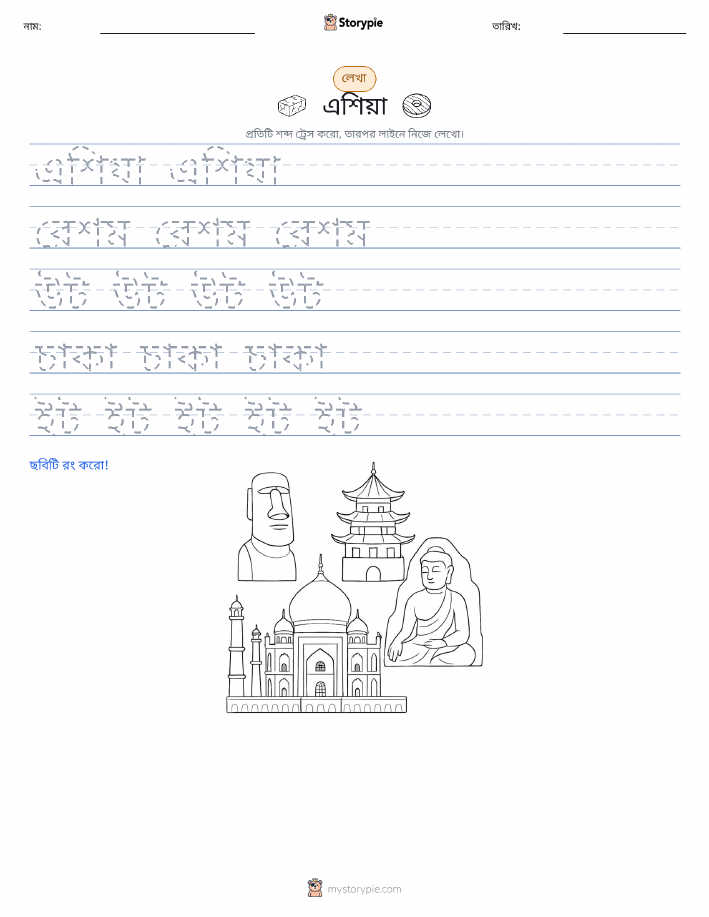 নাম:
Storypie
তারিখ:
লেখা
এশিয়া
প্রতিটি শব্দ ট্রেস করো, তারপর লাইনে নিজে লেখো।
এশিয়া এশিয়া
রেশম রেশম রেশম
উট উট উট উট
চাকা চাকা চাকা
ইট ইট ইট ইট ইট
ছবিটি রং করো!
mystorypie.com